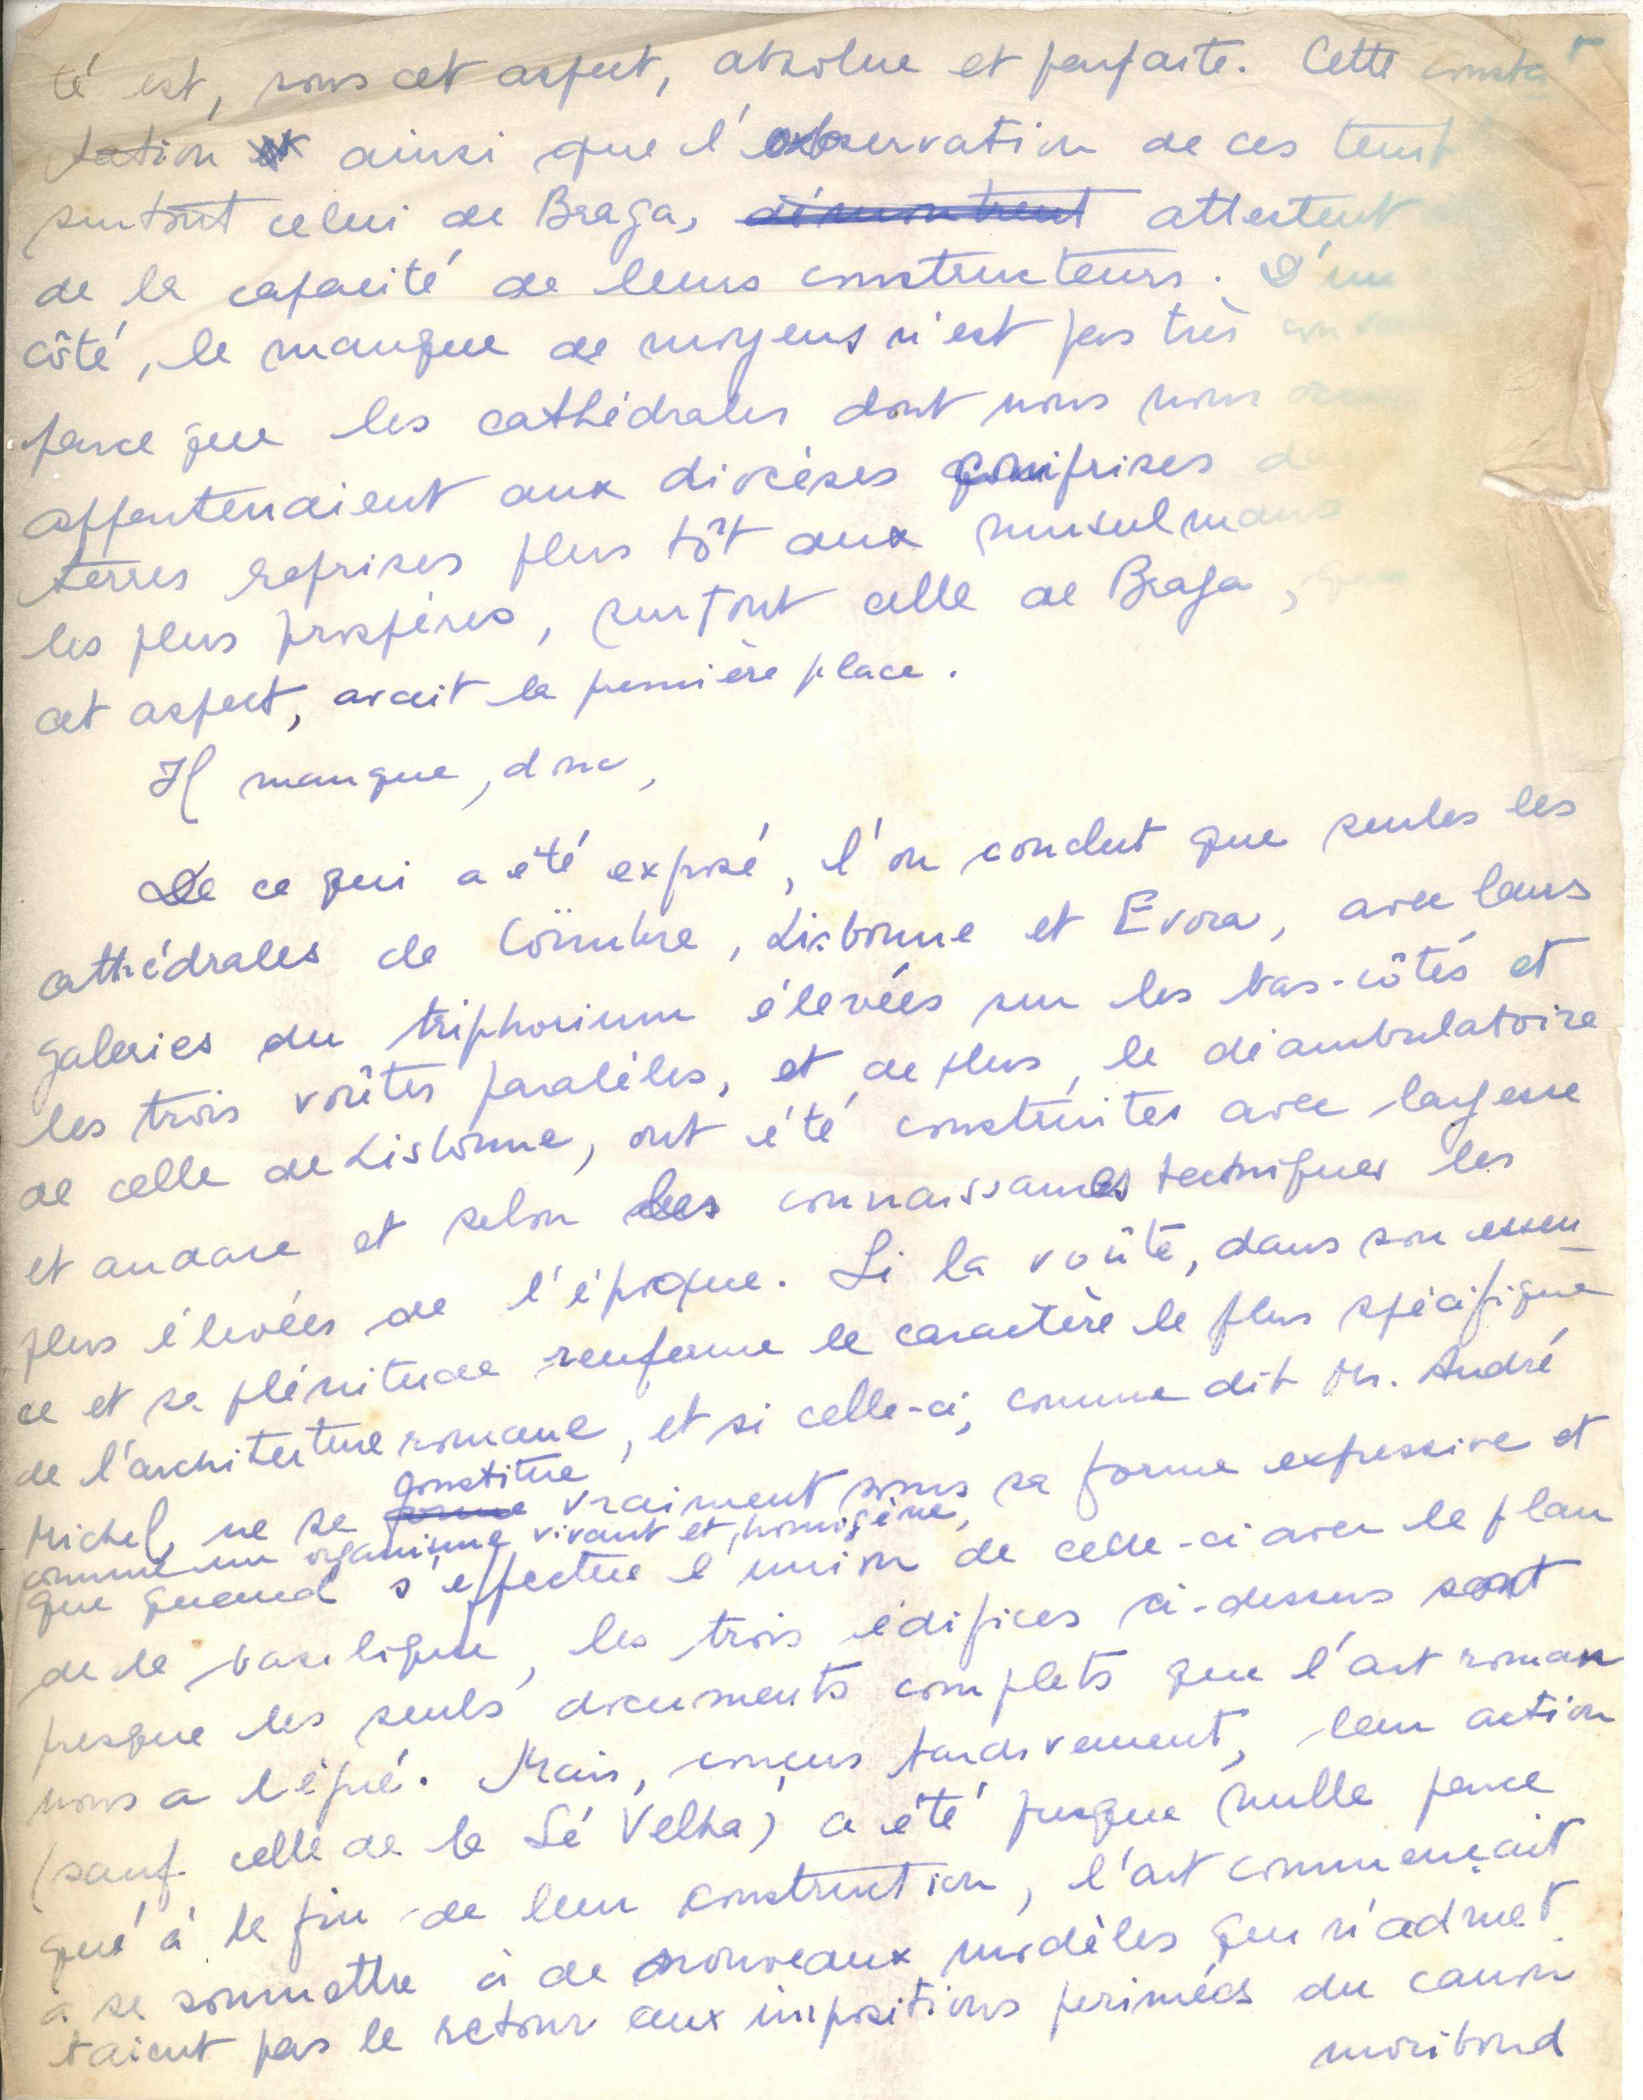 té est, sous cet aspect, absolue et parfaite. Cette consta
tation ainsi que l'observation de ces
surtout celui de Braga, démontrent attestent
de la capacité de leurs constructeurs. D'un
côté, le manque de moyens n'est pas très
parce que les cathédrales dont nous nous
appartenaient aux diocèses comprises
terres reprises plus tôt aux musulmans
les plus prospères, surtout celle de Braga,
cet aspect, avait la première place.
Il manque, donc,
De ce qui a été exposé, l'on conclut que seules les
cathédrales de Coïmbre, Lisbonne et Evora, avec leurs
galeries du triphorium élevées sur les bas-côtés et
les trois voûtes paralèles, et de plus, le déambulatoire
de celle de Lisbonne, ont été construites avec largesse
et audace et selon les connaissances techniques les
plus élevées de l'époque. Si la voûte, dans son essen
ce et sa plénitude renferme le caractère le plus spécifique
de l'architecture romane, et si celle-ci, comme dit Mr. André
constitue
Michel, ne se forme vraiment sous sa forme expressive et
comme un organisme vivant et homogène,
que quand s'effectue l'union de celle-ci avec le plan
de la basilique, les trois édifices ci-dessus sont
presque les seuls documents complets que l'art roman
nous a légué. Mais, conçus tardivement, leur action
(sauf celle de la Sé Velha) a été presque nulle parce
qué à la fin de leur construction, l'art commençait
à se soumettre à de nouveaux modèles qui n'admet
taient pas le retour aux impositions perimées du canon
moribond